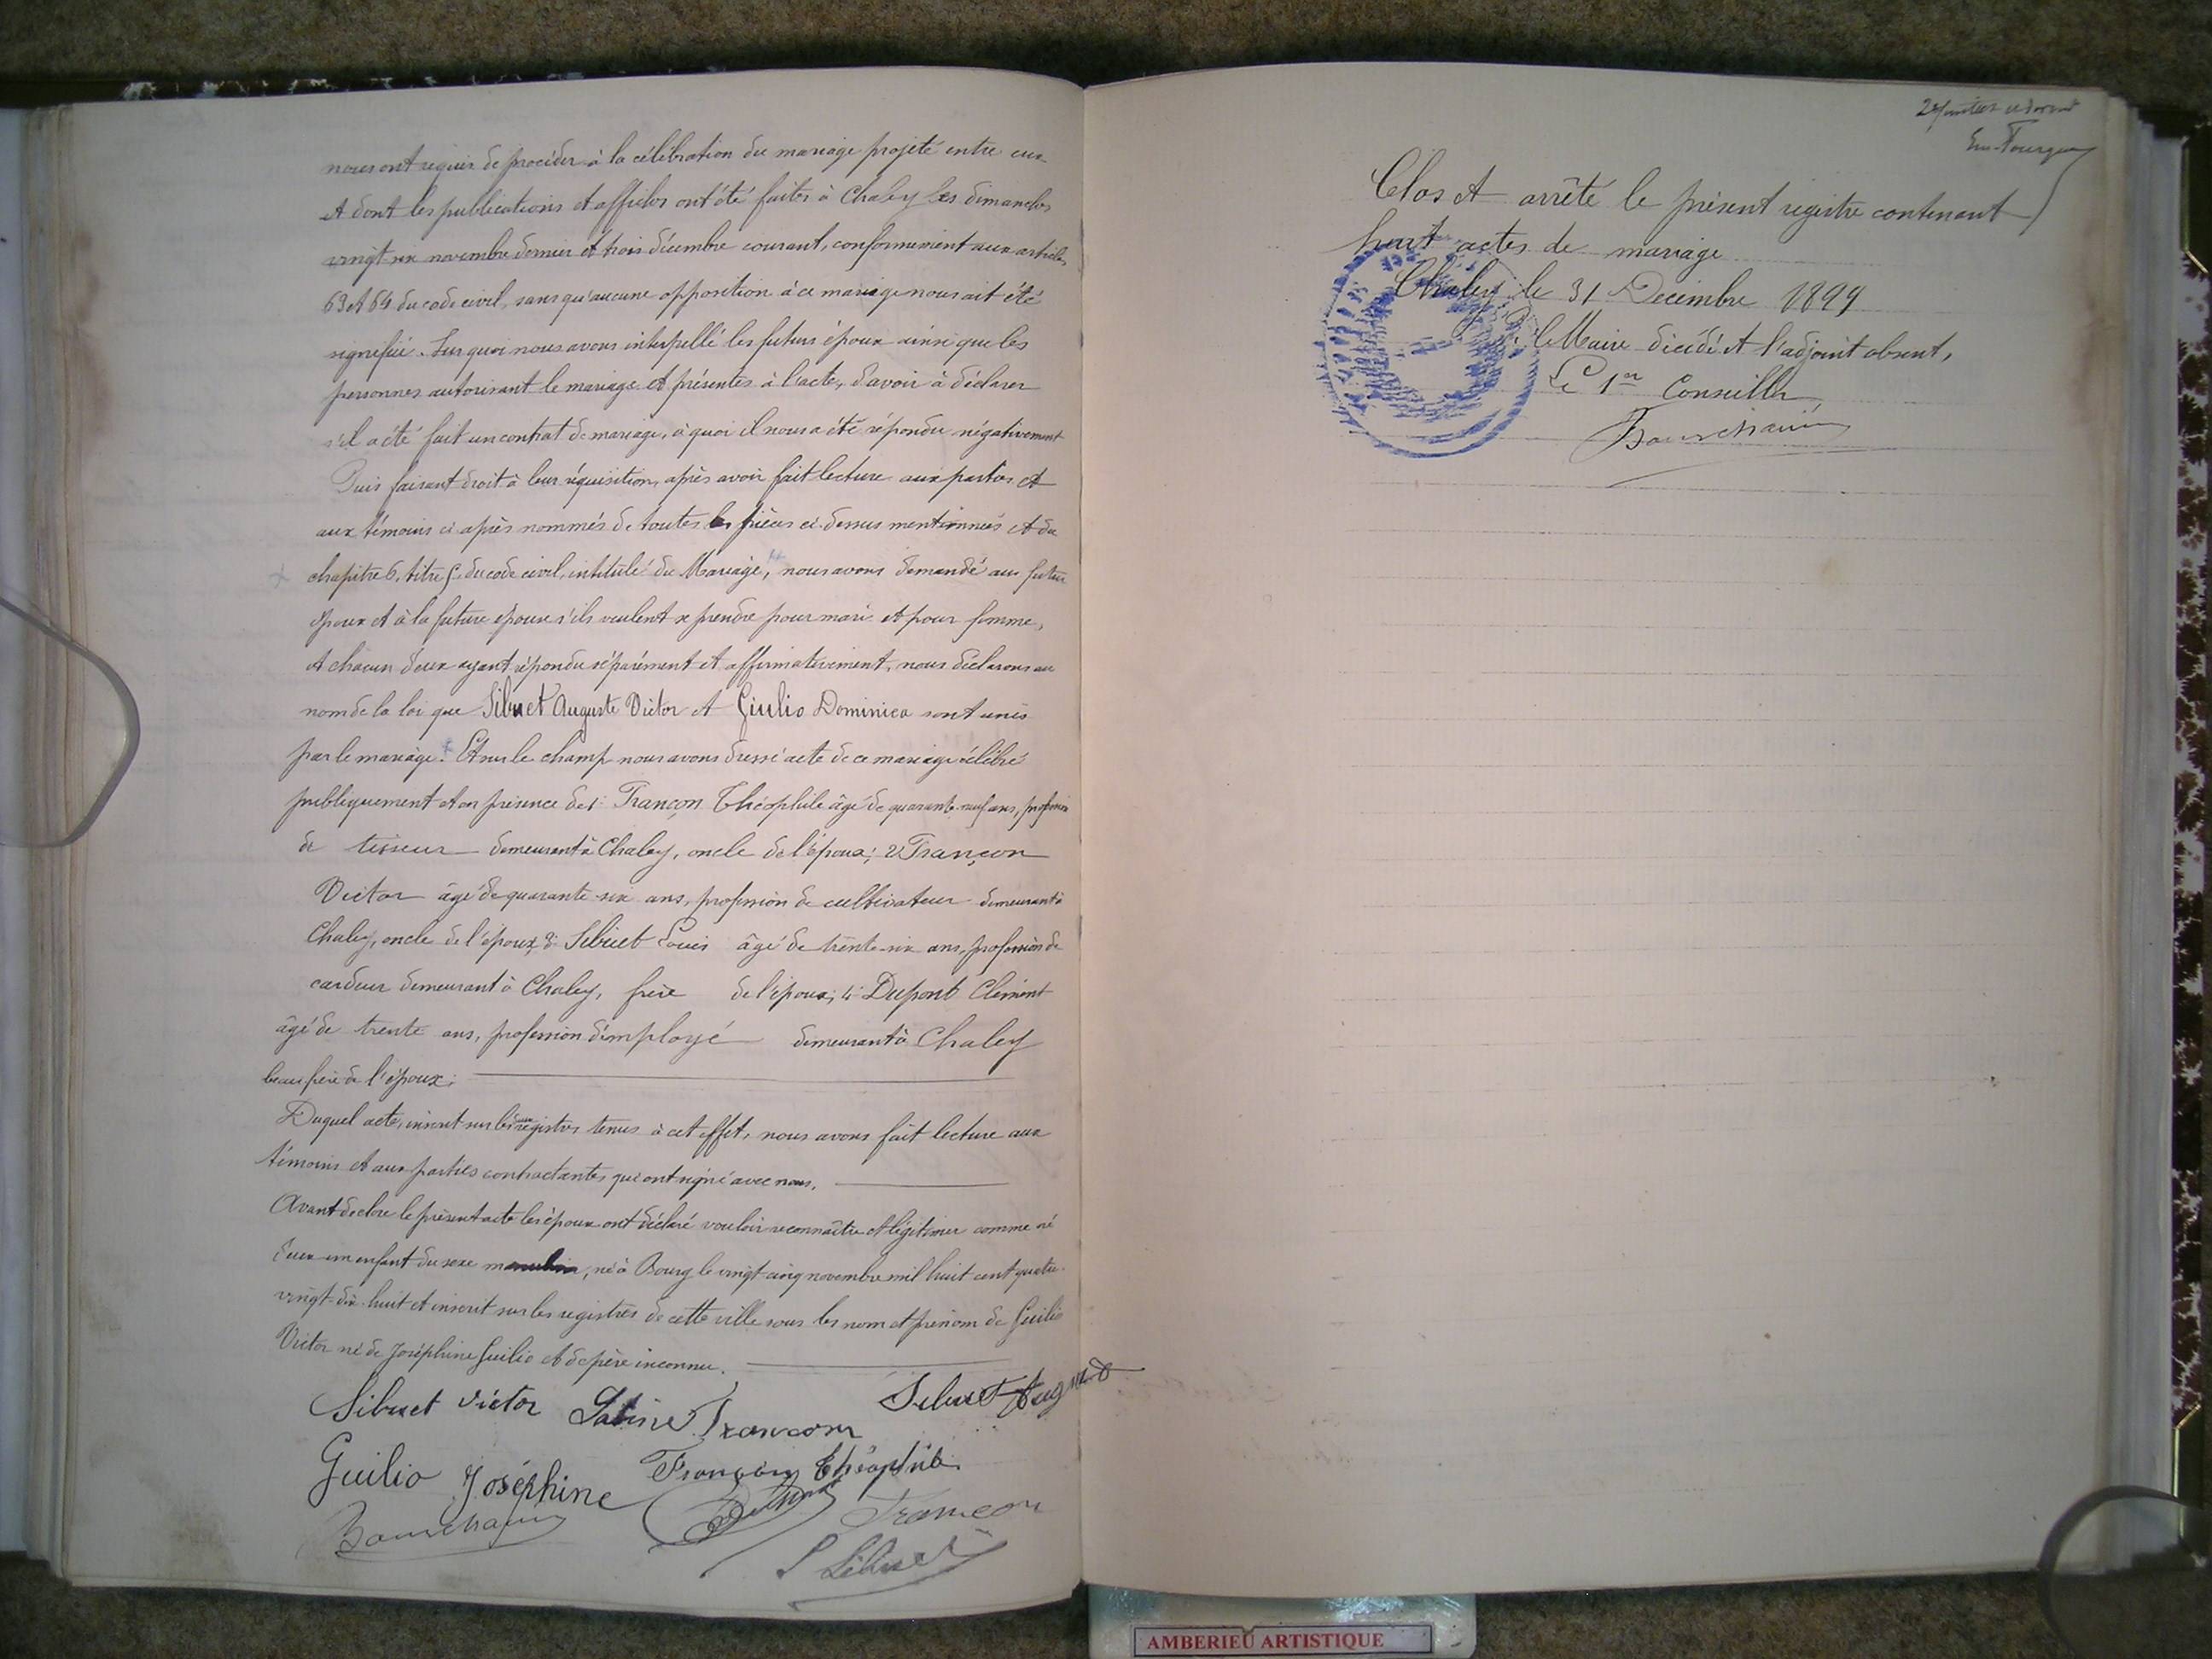 nous ont requis de procéder à la célébration du mariage projeté entre eux
et dont les publications et affiches ont été faites à Chaley les dimanches
vingt six novembre dernier et trois décembre courant, conformément aux articles
63 et 64 du code civil, sans qu'aucune opposition à ce mariage nous ait été
signifiée. Sur quoi nous avons interpellé les futurs époux ainsi que les
personnes autorisant le mariage et présentes à l'acte, d'avoir à déclarer
s'il a été fait un contrat de mariage, à quoi il nous a été répondu négativement
Puis faisant droit à leur réquisition, après avoir fait lecture aux parties et
aux témoins ci après nommés de toutes les pièces ci-dessus mentionnées et du
chapitre 6, titre 5 du code civil, intitulé du Mariage, nous avons demandé au futur
époux et à la future épouse s'ils veulent se prendre pour mari et pour femme,
et chacun d'eux ayant répondu séparément et affirmativement, nous déclarons au
nom de la loi que Sibuet Auguste Victor et Giulio Dominica sont unis
par le mariage. Et sur le champ nous avons dressé acte de ce mariage célébré
publiquement et en présence de 1° Françon Théophile âgé de quarante-neuf ans, profession
de tisseur demeurant à Chaley, oncle de l'époux; 2° Françon
Victor âgé de quarante-six ans, profession de cultivateur demeurant à
Chaley, oncle de l'époux 3° Sibuet Louis âgé de trente-six ans, profession de
cardeur demeurant à Chaley, frère de l'époux; 4° Dupont Clément
âgé de trente ans, profession d'employé demeurant à Chaley
beau frère de l'époux;
Duquel acte, inscrit sur les deux registres tenus à cet effet, nous avons fait lecture aux
témoins et aux parties contractantes qui ont signé avec nous.
Avant de clore le présent acte les époux ont déclaré vouloir reconnaître et légitimer comme né
d'eux un enfant du sexe masculin, né à Bourg le vingt cinq novembre mil huit cent quatre-
vingt-dix-huit et inscrit sur les registres de cette ville sous les nom et prénom de Guilio
Victor né de Joséphine Guilio et de père inconnu.
Sibuet Victor Sabine Françon Sibuet August
Guilio Joséphine Françon Théophile
Bourchanin Dupont Françon
L Sibuet
Em Tourgey
Clos et arrêté le présent registre contenant
huit actes de mariage
Chaley le 31 Décembre 1899
P. le Maire décédé et l'adjoint absent,
Le 1er Conseiller,
Bourchanin
AMBERIEU ARTISTIQUE